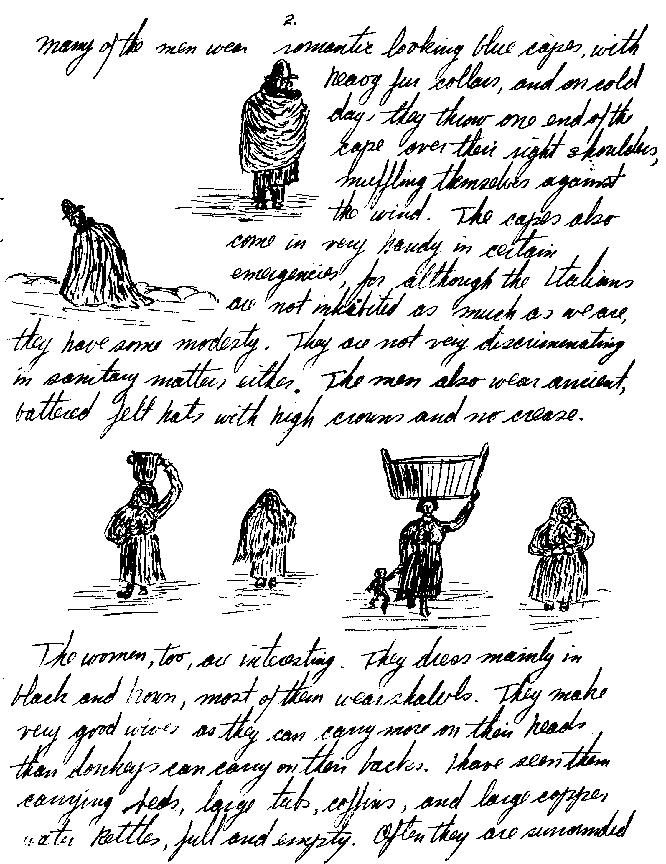 2.
Many of the men wear romantic looking blue capes, with
heavy fur collars, and on cold
days they throw one end of the
cape over their right shoulders,
muffling themselves against
the wind. The capes also
come in very handy in certain
emergencies, for although the Italians
are not inhibited as much as we are,
they have some modesty. They are not very discriminating
in sanitary matters either. The men also wear ancient,
battered felt hats with high crowns and no crease.
The women, too, are interesting. They dress mainly in
black and brown, most of them wear shawls. They make
very good wives as they can carry more on their heads
than donkeys can carry on their backs. I have seen them
carrying beds, large tubs, coffins, and large copper
water kettles, full and empty. Often they are surrounded